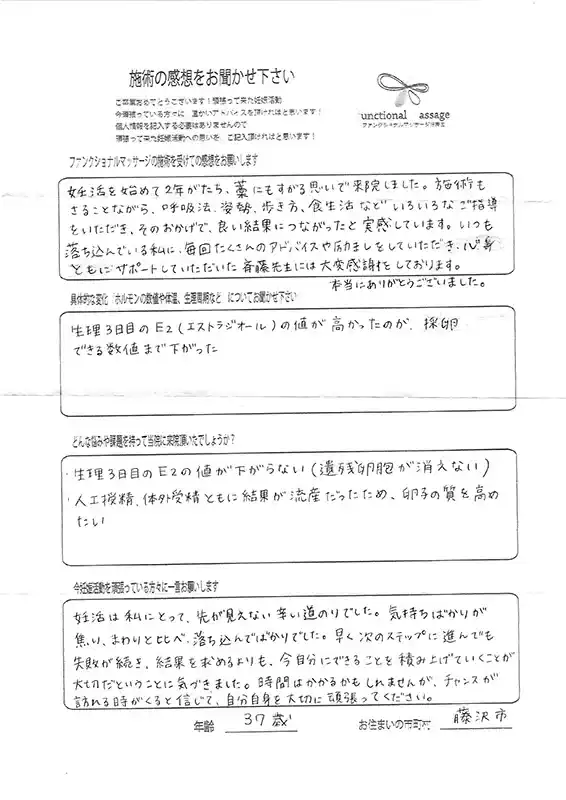 施術の感想をお聞かせ下さい
ご卒業おめでとうございます！頑張って来た妊娠活動
今頑張っている方々に 温かいアドバイスを頂ければと思います！
個人情報を記入する必要はありませんので
頑張って来た妊娠活動への思いを、ご記入頂ければと思います！
unctional assage
ファンクショナルマッサージ治療室
ファンクショナルマッサージの施術を受けての感想をお願いします
妊活を始めて2年がたち、藁にもすがる思いで来院しました。施術も
さることながら、呼吸法、姿勢、歩き方、食生活などいろいろなご指導
をいただき、そのおかげで、良い結果につながったと実感しています。いつも
落ち込んでいる私に、毎回たくさんのアドバイスや励ましをしていただき、心身
ともにサポートしていただいた斉藤先生には大変感謝をしております。
本当にありがとうございました。
具体的な変化「ホルモンの数値や体温、生理周期など」についてお聞かせ下さい
生理3日目のE2(エストラジオール)の値が高かったのが、採卵
できる数値まで下がった
どんな悩みや課題を持って当院に来院頂いたでしょうか？
・生理3日目のE2の値が下がらない(遺残卵胞が消えない)
・人工授精、体外受精ともに結果が流産だったため、卵子の質を高め
たい
今妊娠活動を頑張っている方々に一言お願いします
妊活は私にとって、先が見えない辛い道のりでした。気持ちばかりが
焦り、まわりと比べ、落ち込んでばかりでした。早く次のステップに進んでも
失敗が続き、結果を求めるよりも、今自分にできることを積み上げていくことが
大切だということに気づきました。時間はかかるかもしれませんが、チャンスが
訪れる時がくると信じて、自分自身を大切に頑張ってください。
年齢 37歳 お住まいの市町村 藤沢市